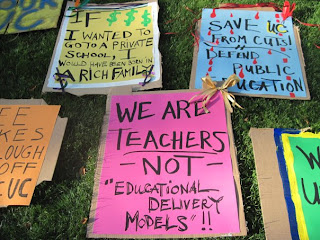 UC
IF $ $ $
I WANTED TO
GO TO A PRIVATE
SCHOOL, I
WOULD HAVE BEEN BORN IN
A RICH FAMILY
SAVE UC
FROM CUTS!
DEFEND
PUBLIC
EDUCATION
EE
KES
LOUGH
OFF
UC
WE ARE
TEACHERS
- NOT -
"EDUCATIONAL
DELIVERY
MODELS"!!